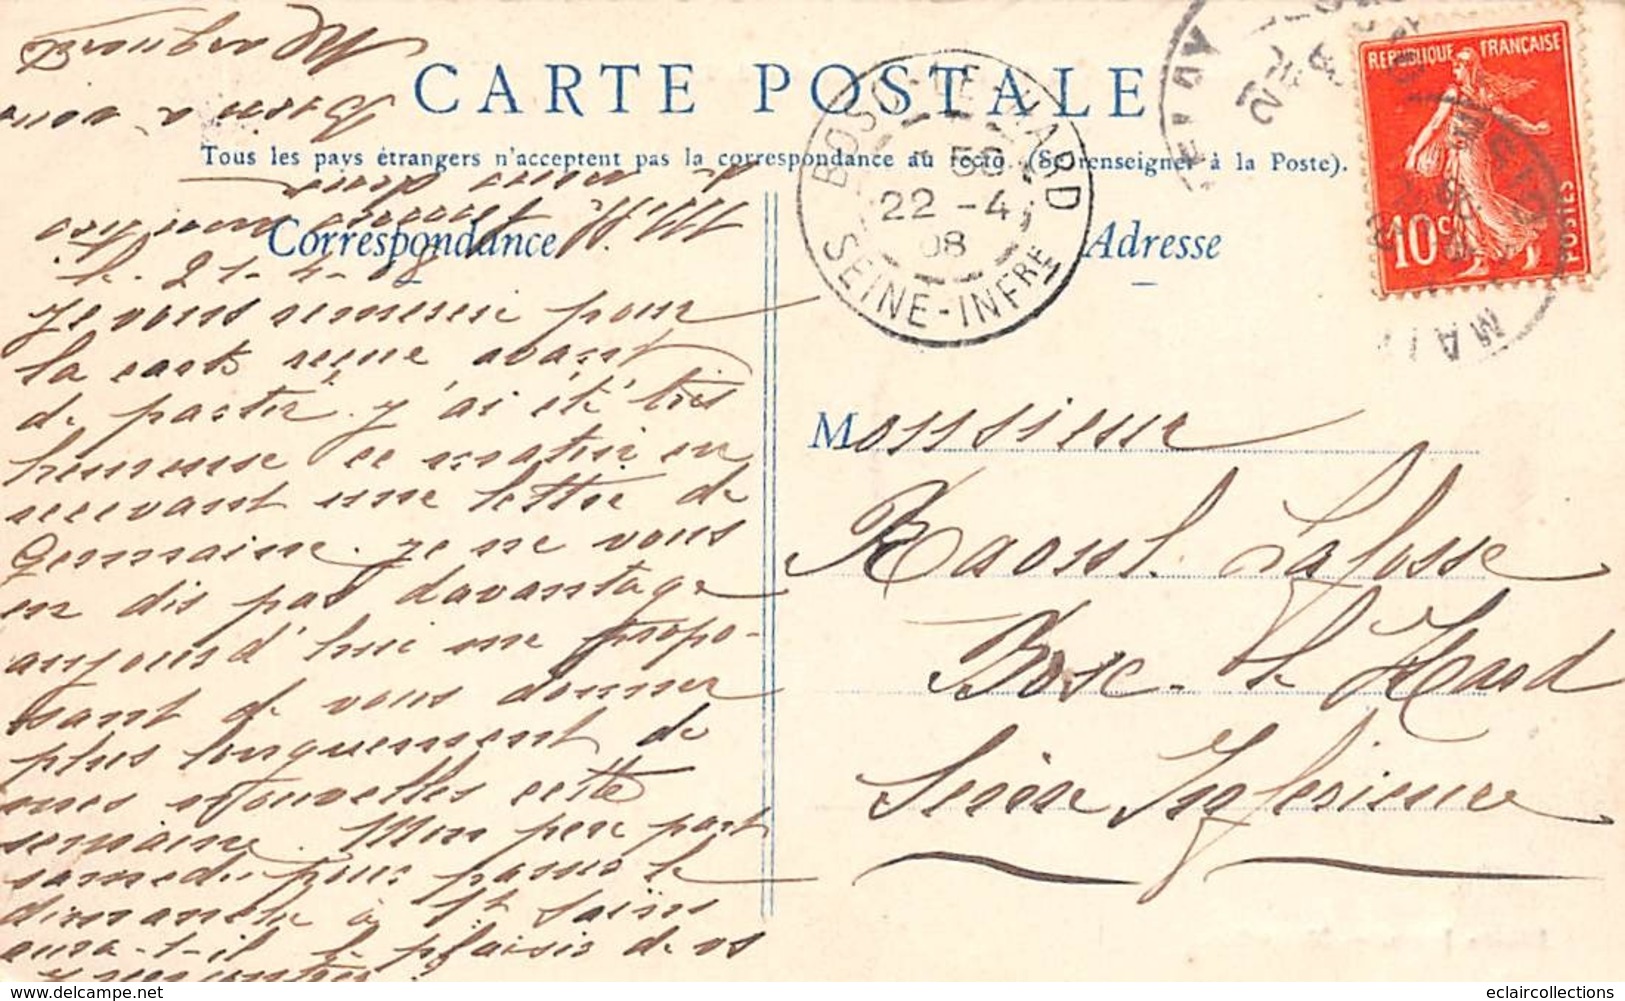 CARTE POSTALE
Tous les pays étrangers n'acceptent pas la correspondance au recto. (Se renseigner à la Poste).
Correspondance
Adresse
REPUBLIQUE FRANÇAISE
10c
POSTES
BOSC-LE-HARD
22 -4
08
SEINE-INFRE
Marguerite
Bien à vous
21-4-08
Je vous remercie pour
la carte reçue avant
de partir. j'ai été très
heureuse ce matin en
recevant une lettre de
Germaine. je ne vous
en dis pas davantage
aujourd'hui me propo-
sant de vous donner
plus longuement de
mes nouvelles cette
semaine. Mon père part
samedi pour passer le
dimanche à St Saëns
aura-t-il le plaisir de vs
y rencontrer
Monsieur
Raoul Lafosse
Bosc-le-Hard
Seine Inférieure
eclaircollections.delcampe.net
eclaircollections